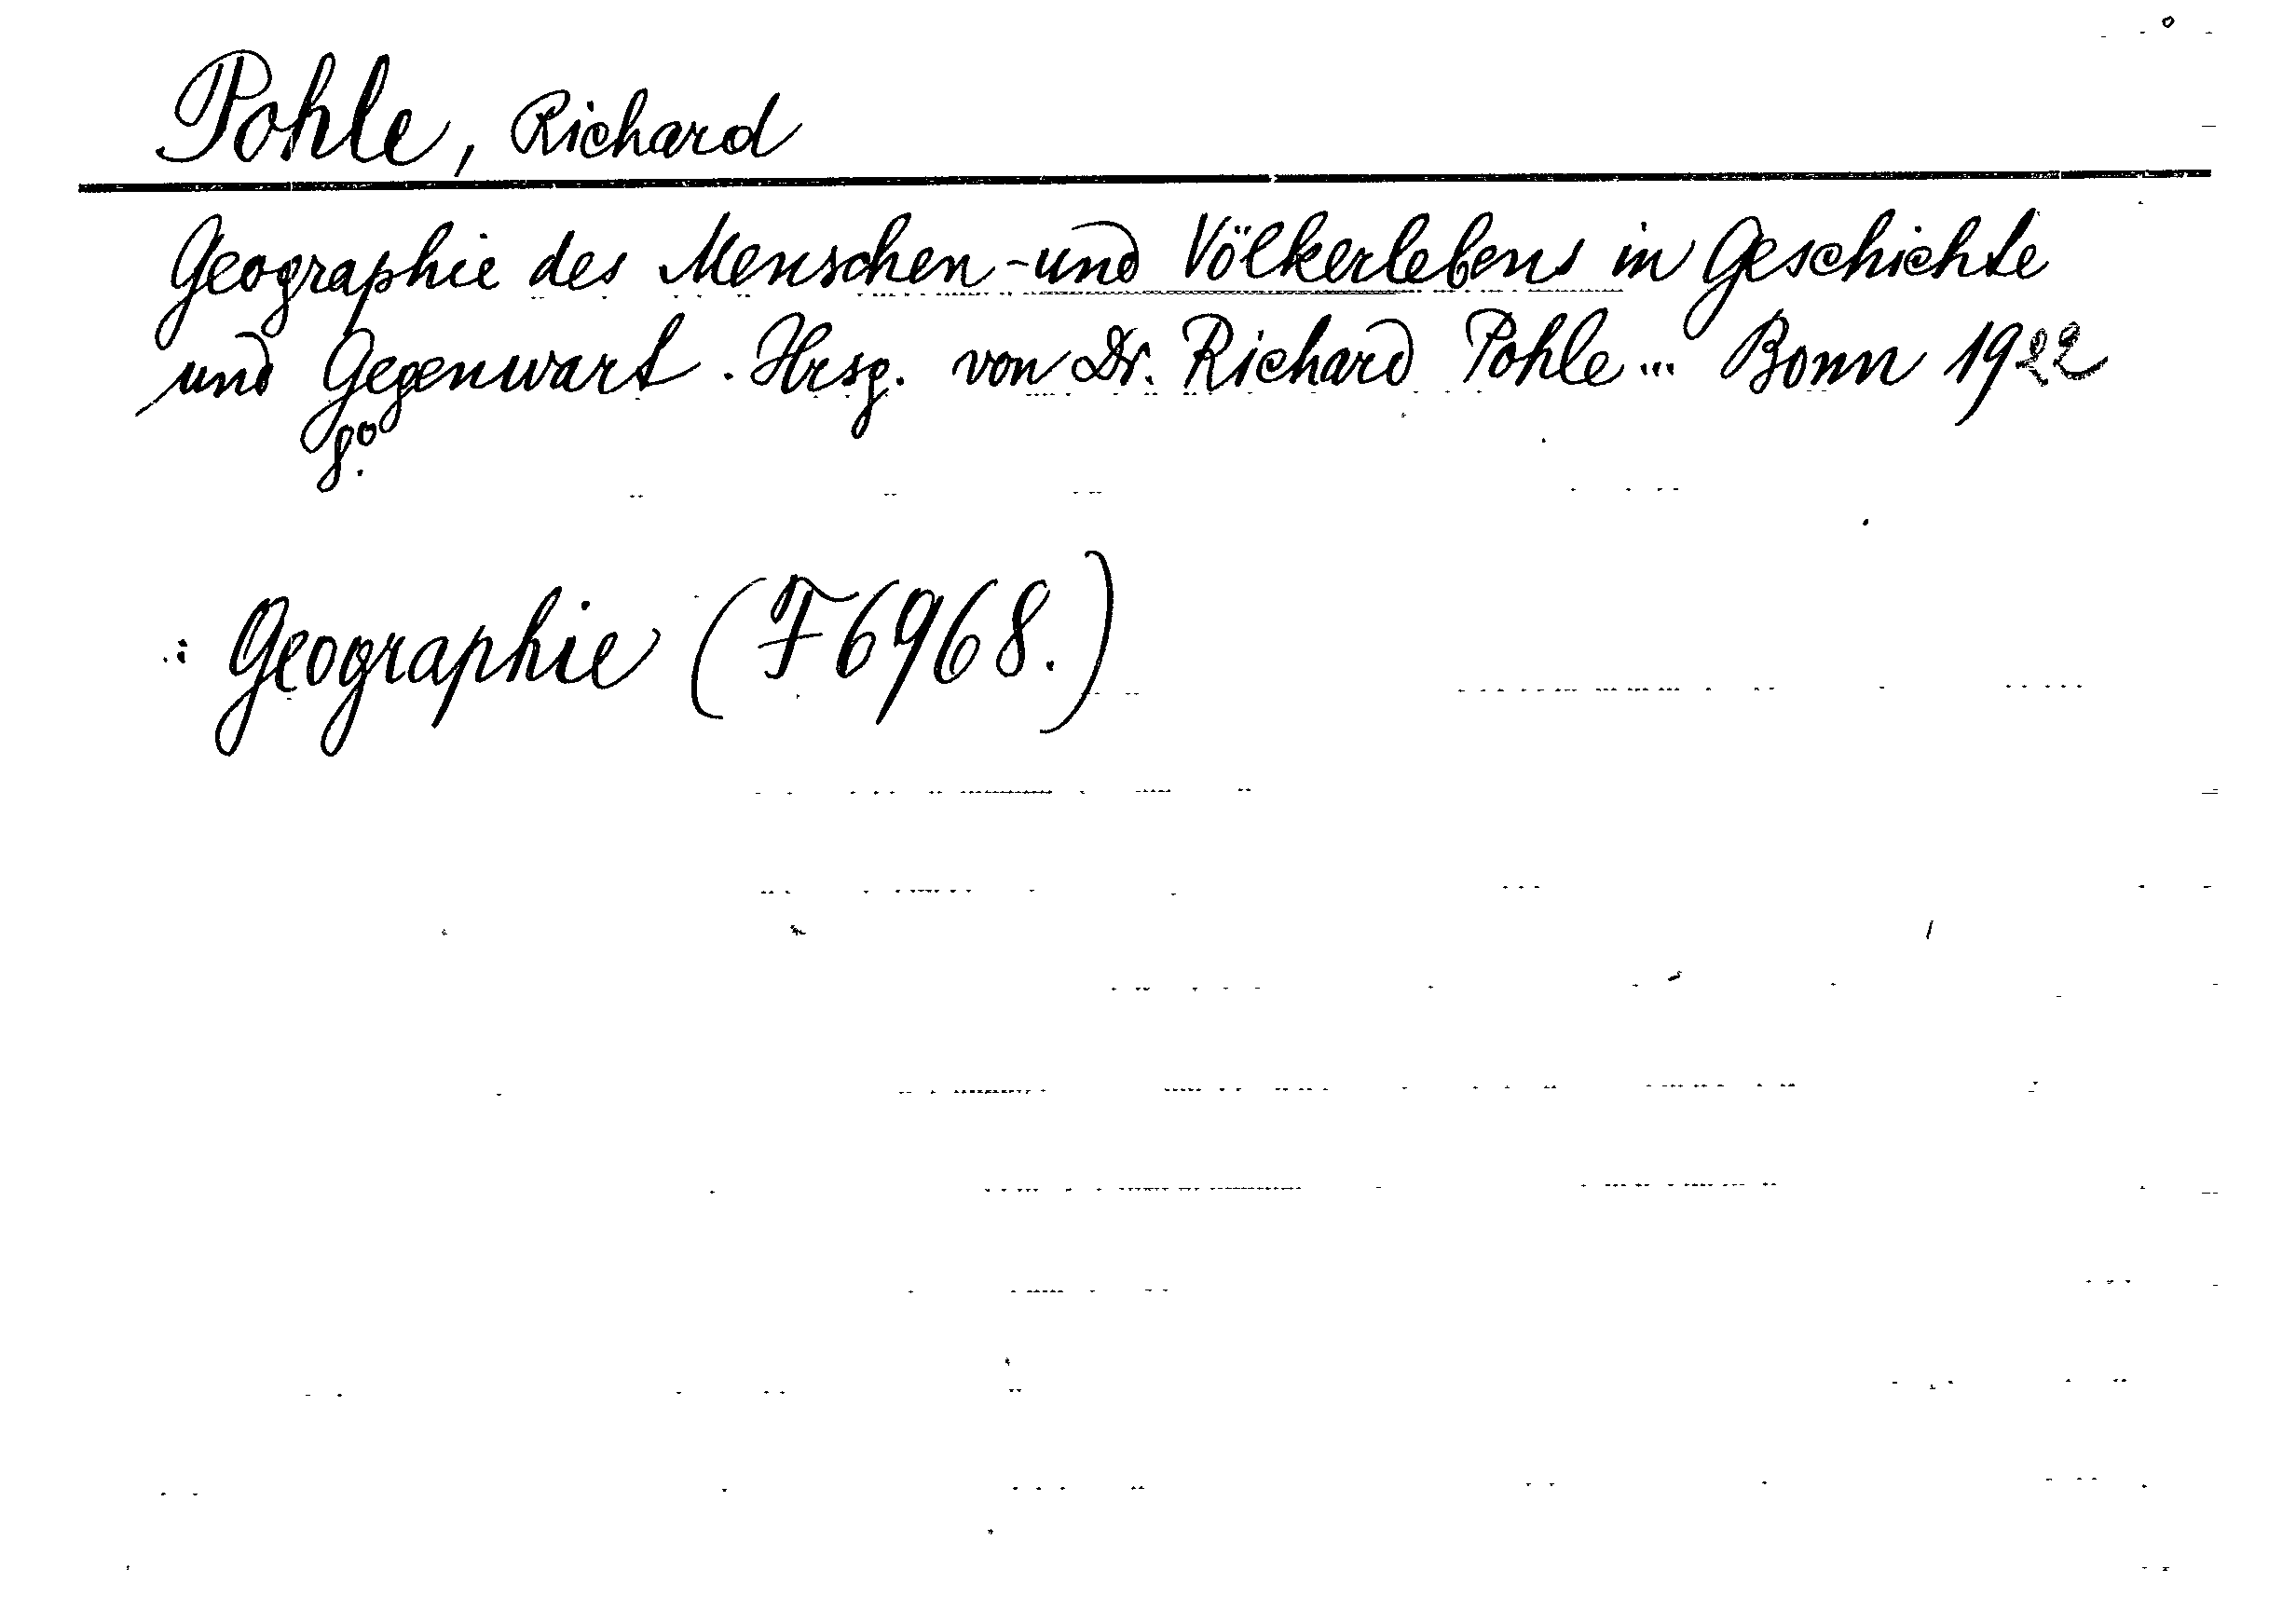 Pohle, Richard
Geographie des Menschen- und Völkerlebens in Geschichte
und Gegenwart. Hrsg. von Dr. Richard Pohle... Bonn 1922
8°.
: Geographie (F 6968.)